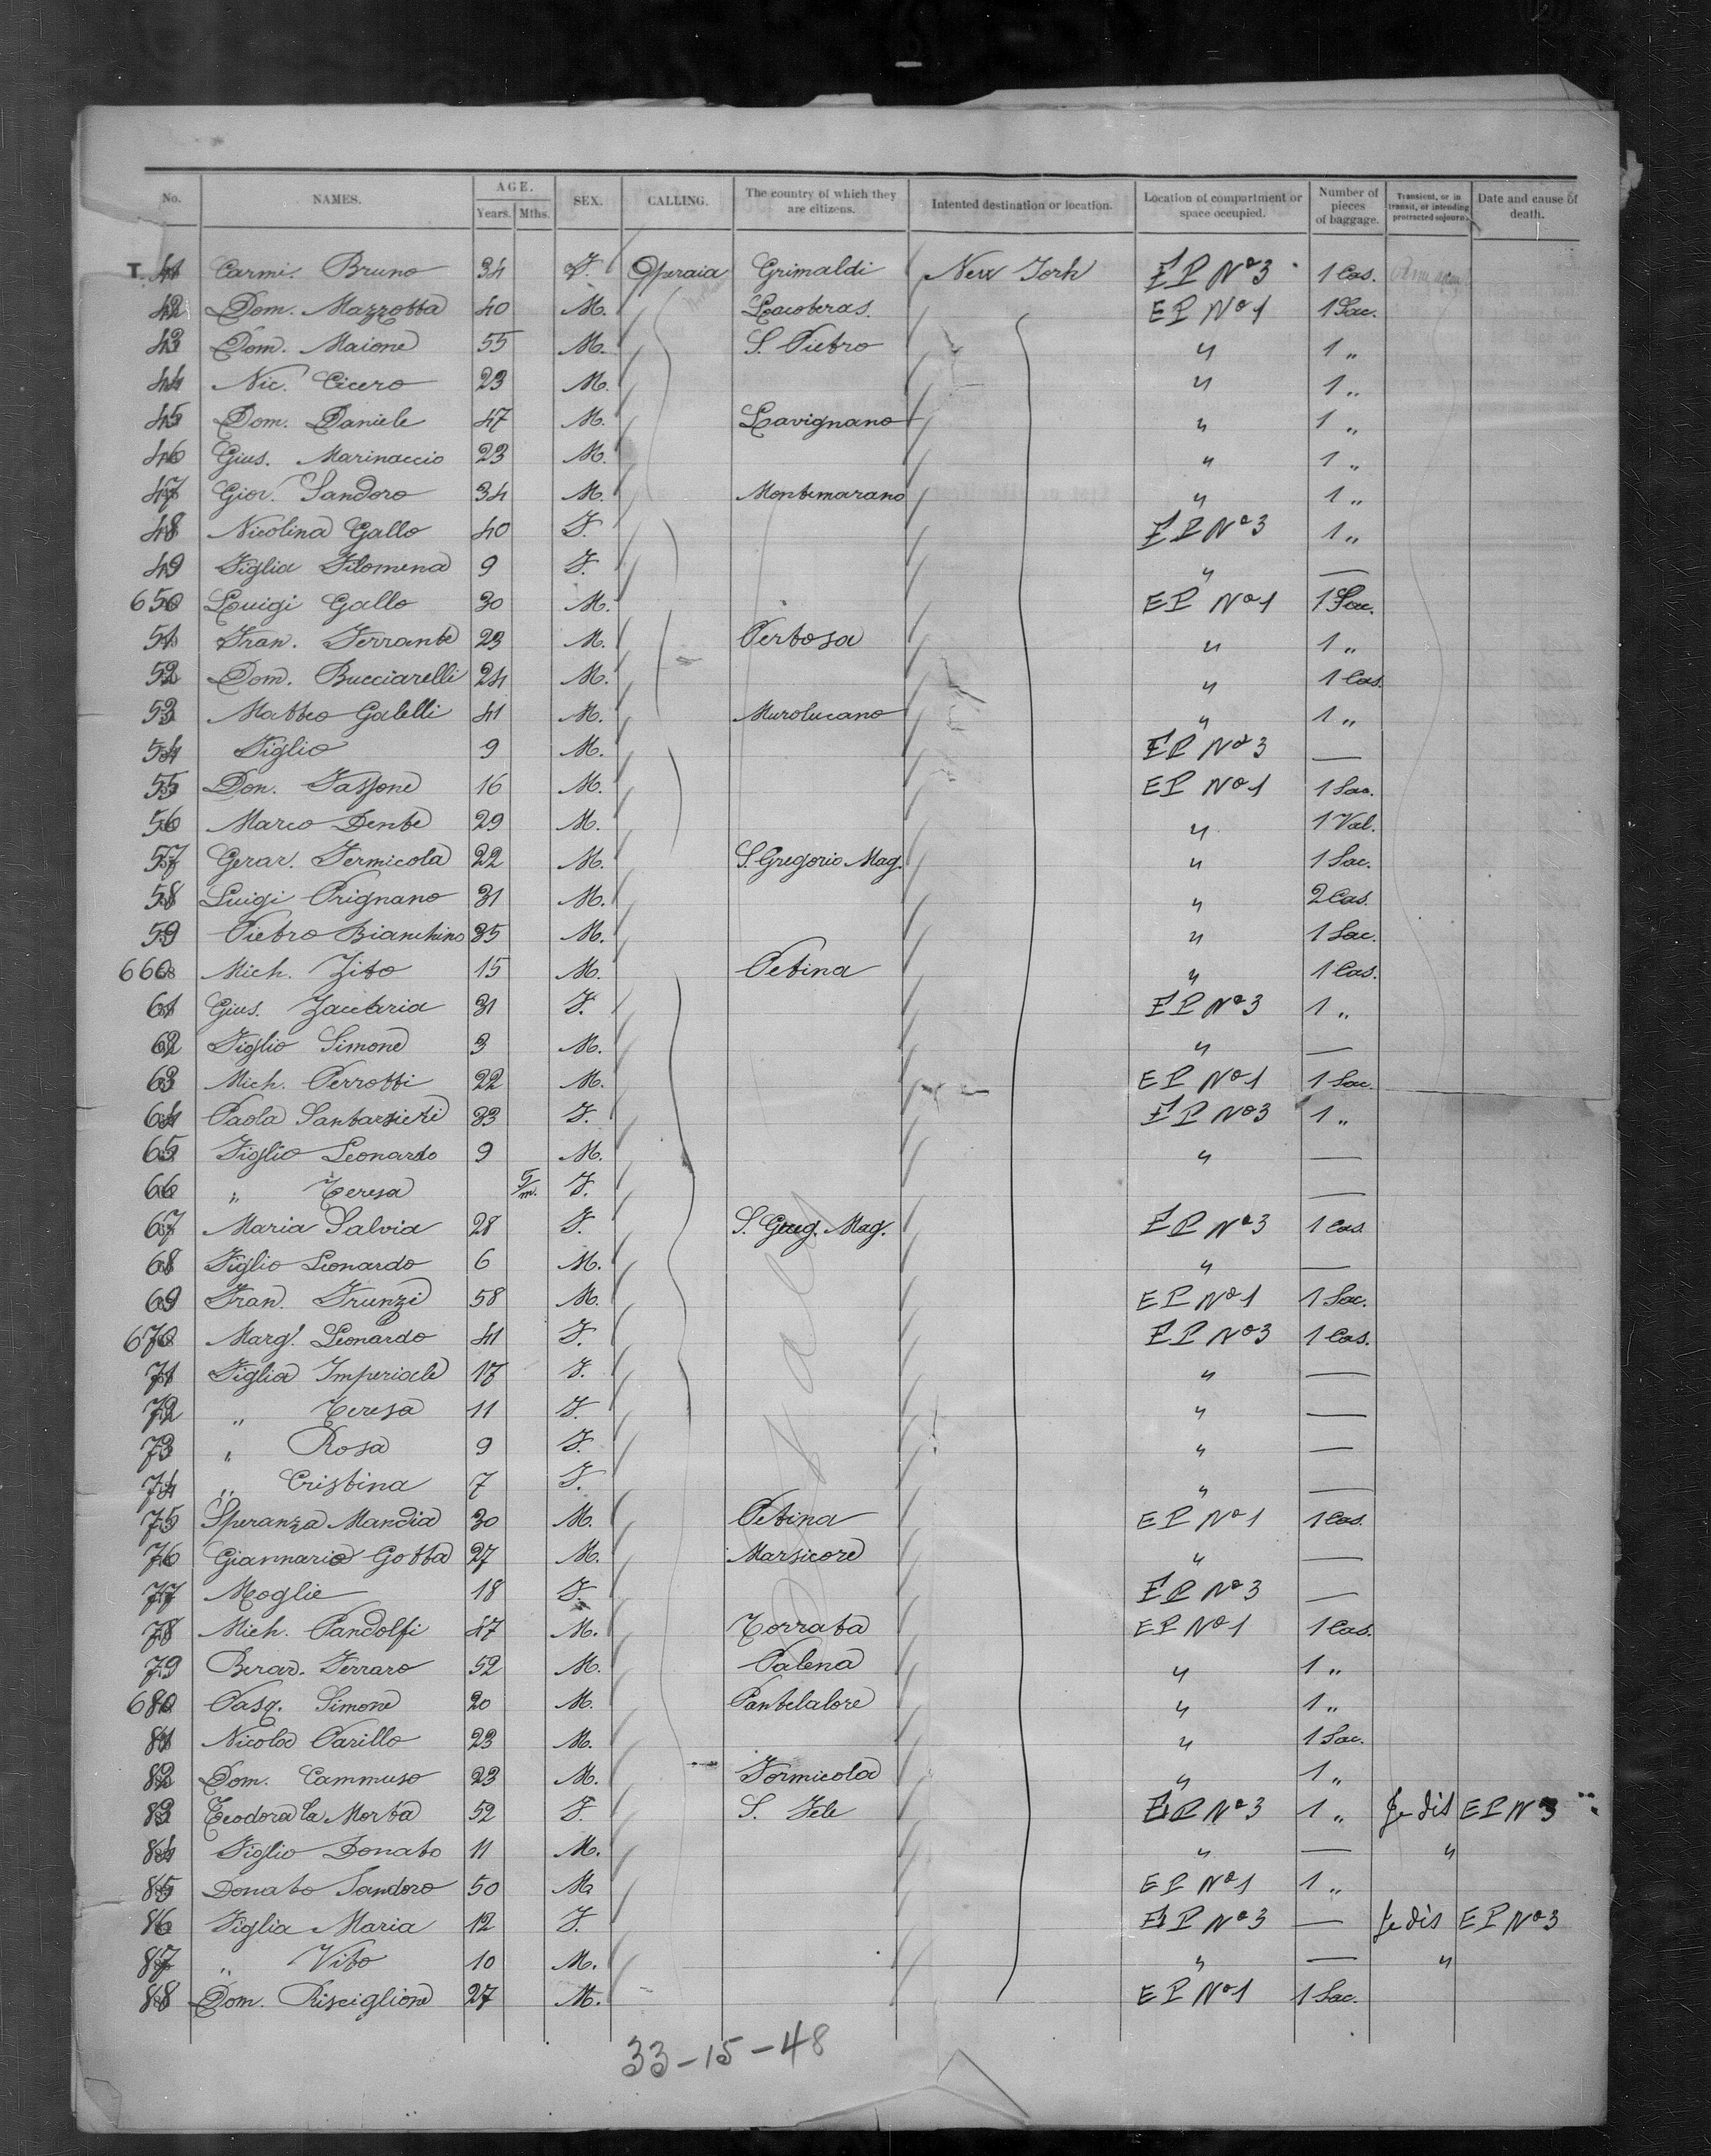 No. NAMES. AGE. Years. Mths. SEX. CALLING. The country of which they are citizens. Intented destination or location. Location of compartment or space occupied. Number of pieces of baggage. Transient, or in transit, or intending protracted sojourn. Date and cause of death.
T. 41 Carmi. Bruno 34 F. Operaia Grimaldi New York EP No 3 1 Cas.
42 Dom. Mazzotta 40 M. EP No 1 1 Sac.
43 Dom. Maione 55 M. S. Pietro " 1 "
44 Nic. Cicero 23 M. " 1 "
45 Dom. Daniele 47 M. Lavignano " 1 "
46 Gius. Marinaccio 23 M. " 1 "
47 Giov. Sandoro 34 M. Montemarano " 1 "
48 Nicolina Gallo 40 F. EP No 3 1 "
49 Figlia Filomena 9 F. " —
650 Luigi Gallo 30 M. EP No 1 1 Sac.
51 Fran. Ferrante 23 M. Pertosa " 1 "
52 Dom. Bucciarelli 24 M. " 1 Cas.
53 Matteo Galelli 41 M. Murolucano " 1 "
54 Figlio 9 M. EP No 3 —
55 Don. Fassone 16 M. EP No 1 1 Sac.
56 Marco Dente 29 M. " 1 Val.
57 Gerar. Fermicola 22 M. S. Gregorio Mag. " 1 Sac.
58 Luigi Prignano 31 M. " 2 Cas.
59 Pietro Bianchino 35 M. " 1 Sac.
660 Mich. Zito 15 M. Petina " 1 Cas.
61 Gius. Zaccaria 31 F. EP No 3 1 "
62 Figlio Simone 3 M. " —
63 Mich. Perrotti 22 M. EP No 1 1 Sac.
64 Paola Santarsieri 33 F. EP No 3 1 "
65 Figlio Leonardo 9 M. " —
66 " Teresa 5/m. F. —
67 Maria Salvia 28 F. S. Greg. Mag. EP No 3 1 Cas.
68 Figlio Leonardo 6 M. " —
69 Fran. Frunzi 58 M. EP No 1 1 Sac.
670 Marg. Leonardo 41 F. EP No 3 1 Cas.
71 Figlia Imperiale 17 F. " —
72 " Teresa 11 F. " —
73 " Rosa 9 F. " —
74 " Cristina 7 F. " —
75 Speranza Mandia 30 M. Petina EP No 1 1 Cas.
76 Giannario Gotta 27 M. Marsicore " —
77 Moglie 18 F. EP No 3 —
78 Mich. Pandolfi 47 M. Torrata EP No 1 1 Cas.
79 Berar. Ferraro 52 M. Palena " 1 "
680 Pasq. Simone 20 M. Pantelalore " 1 "
81 Nicola Parillo 23 M. " 1 Sac.
82 Dom. Cammuso 23 M. Formicola " 1 "
83 Teodora la Morta 52 F. S. Fele EP No 3 1 " Je dis EP No 3
84 Figlio Donato 11 M. " — "
85 Donato Sandoro 50 M. EP No 1 1 "
86 Figlia Maria 12 F. EP No 3 — Je dis EP No 3
87 " Vito 10 M. " — "
88 Dom. Risciglione 27 M. EP No 1 1 Sac.
33-15-48